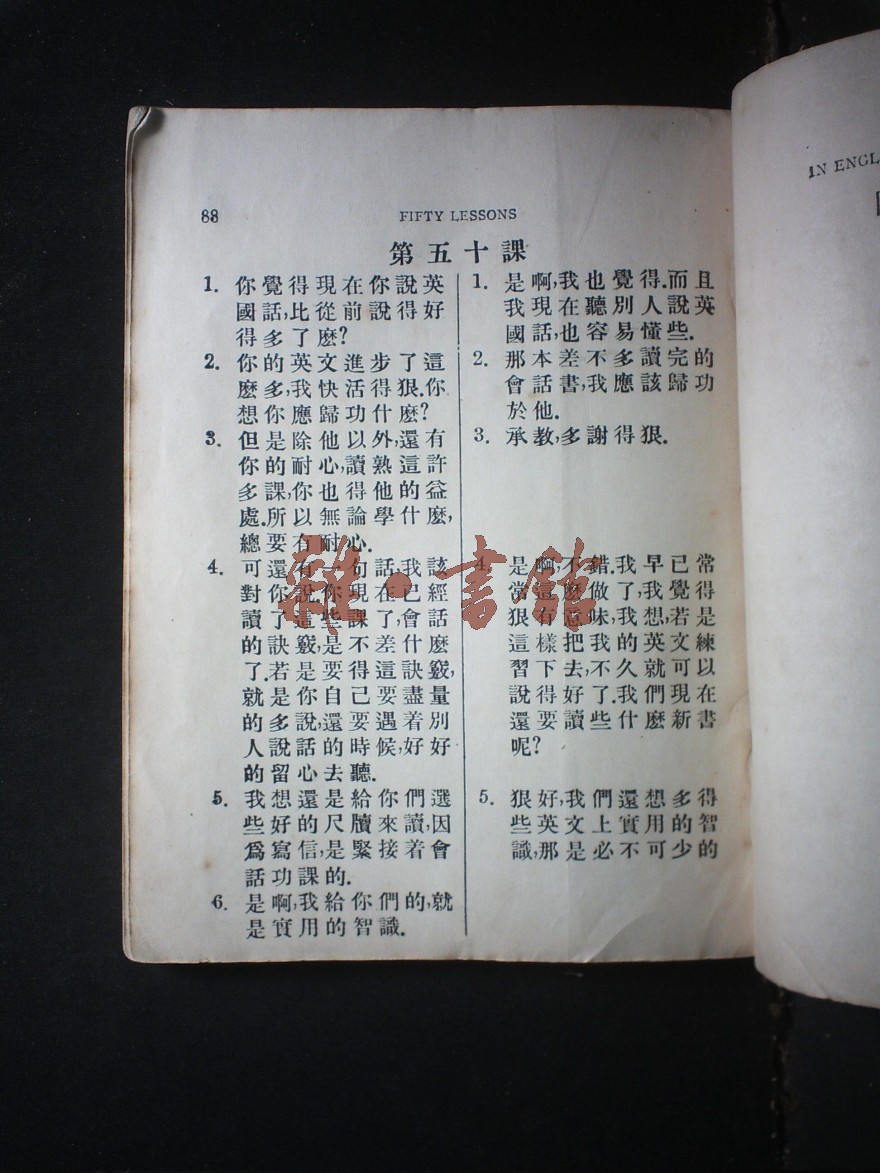 88
FIFTY LESSONS
第五十課
1. 你覺得現在你說英
國話,比從前說得好
得多了麽?
2. 你的英文進步了這
麽多,我快活得狠.你
想你應歸功什麽?
3. 但是除他以外,還有
你的耐心,讀熟這許
多課,你也得他的益
處.所以無論學什麽,
總要有耐心.
4. 可還有一句話,我該
對你說.你現在已經
讀了這些課了,會話
的訣竅,是不差什麽
了.若是要得這訣竅,
就是你自己要盡量
的多說,還要遇着別
人說話的時候,好好
的留心去聽.
5. 我想還是給你們選
些好的尺牘來讀,因
爲寫信,是緊接着會
話功課的.
6. 是啊,我給你們的,就
是實用的智識.
1. 是啊,我也覺得.而且
我現在聽別人說英
國話,也容易懂些.
2. 那本差不多讀完的
會話書,我應該歸功
於他.
3. 承教,多謝得狠.
4. 是啊,不錯.我早已常
常這麽做了,我覺得
狠有意味,我想,若是
這樣把我的英文練
習下去,不久就可以
說得好了.我們現在
還要讀些什麽新書
呢?
5. 狠好,我們還想多得
些英文上實用的智
識,那是必不可少的
IN ENGL
雜·書館